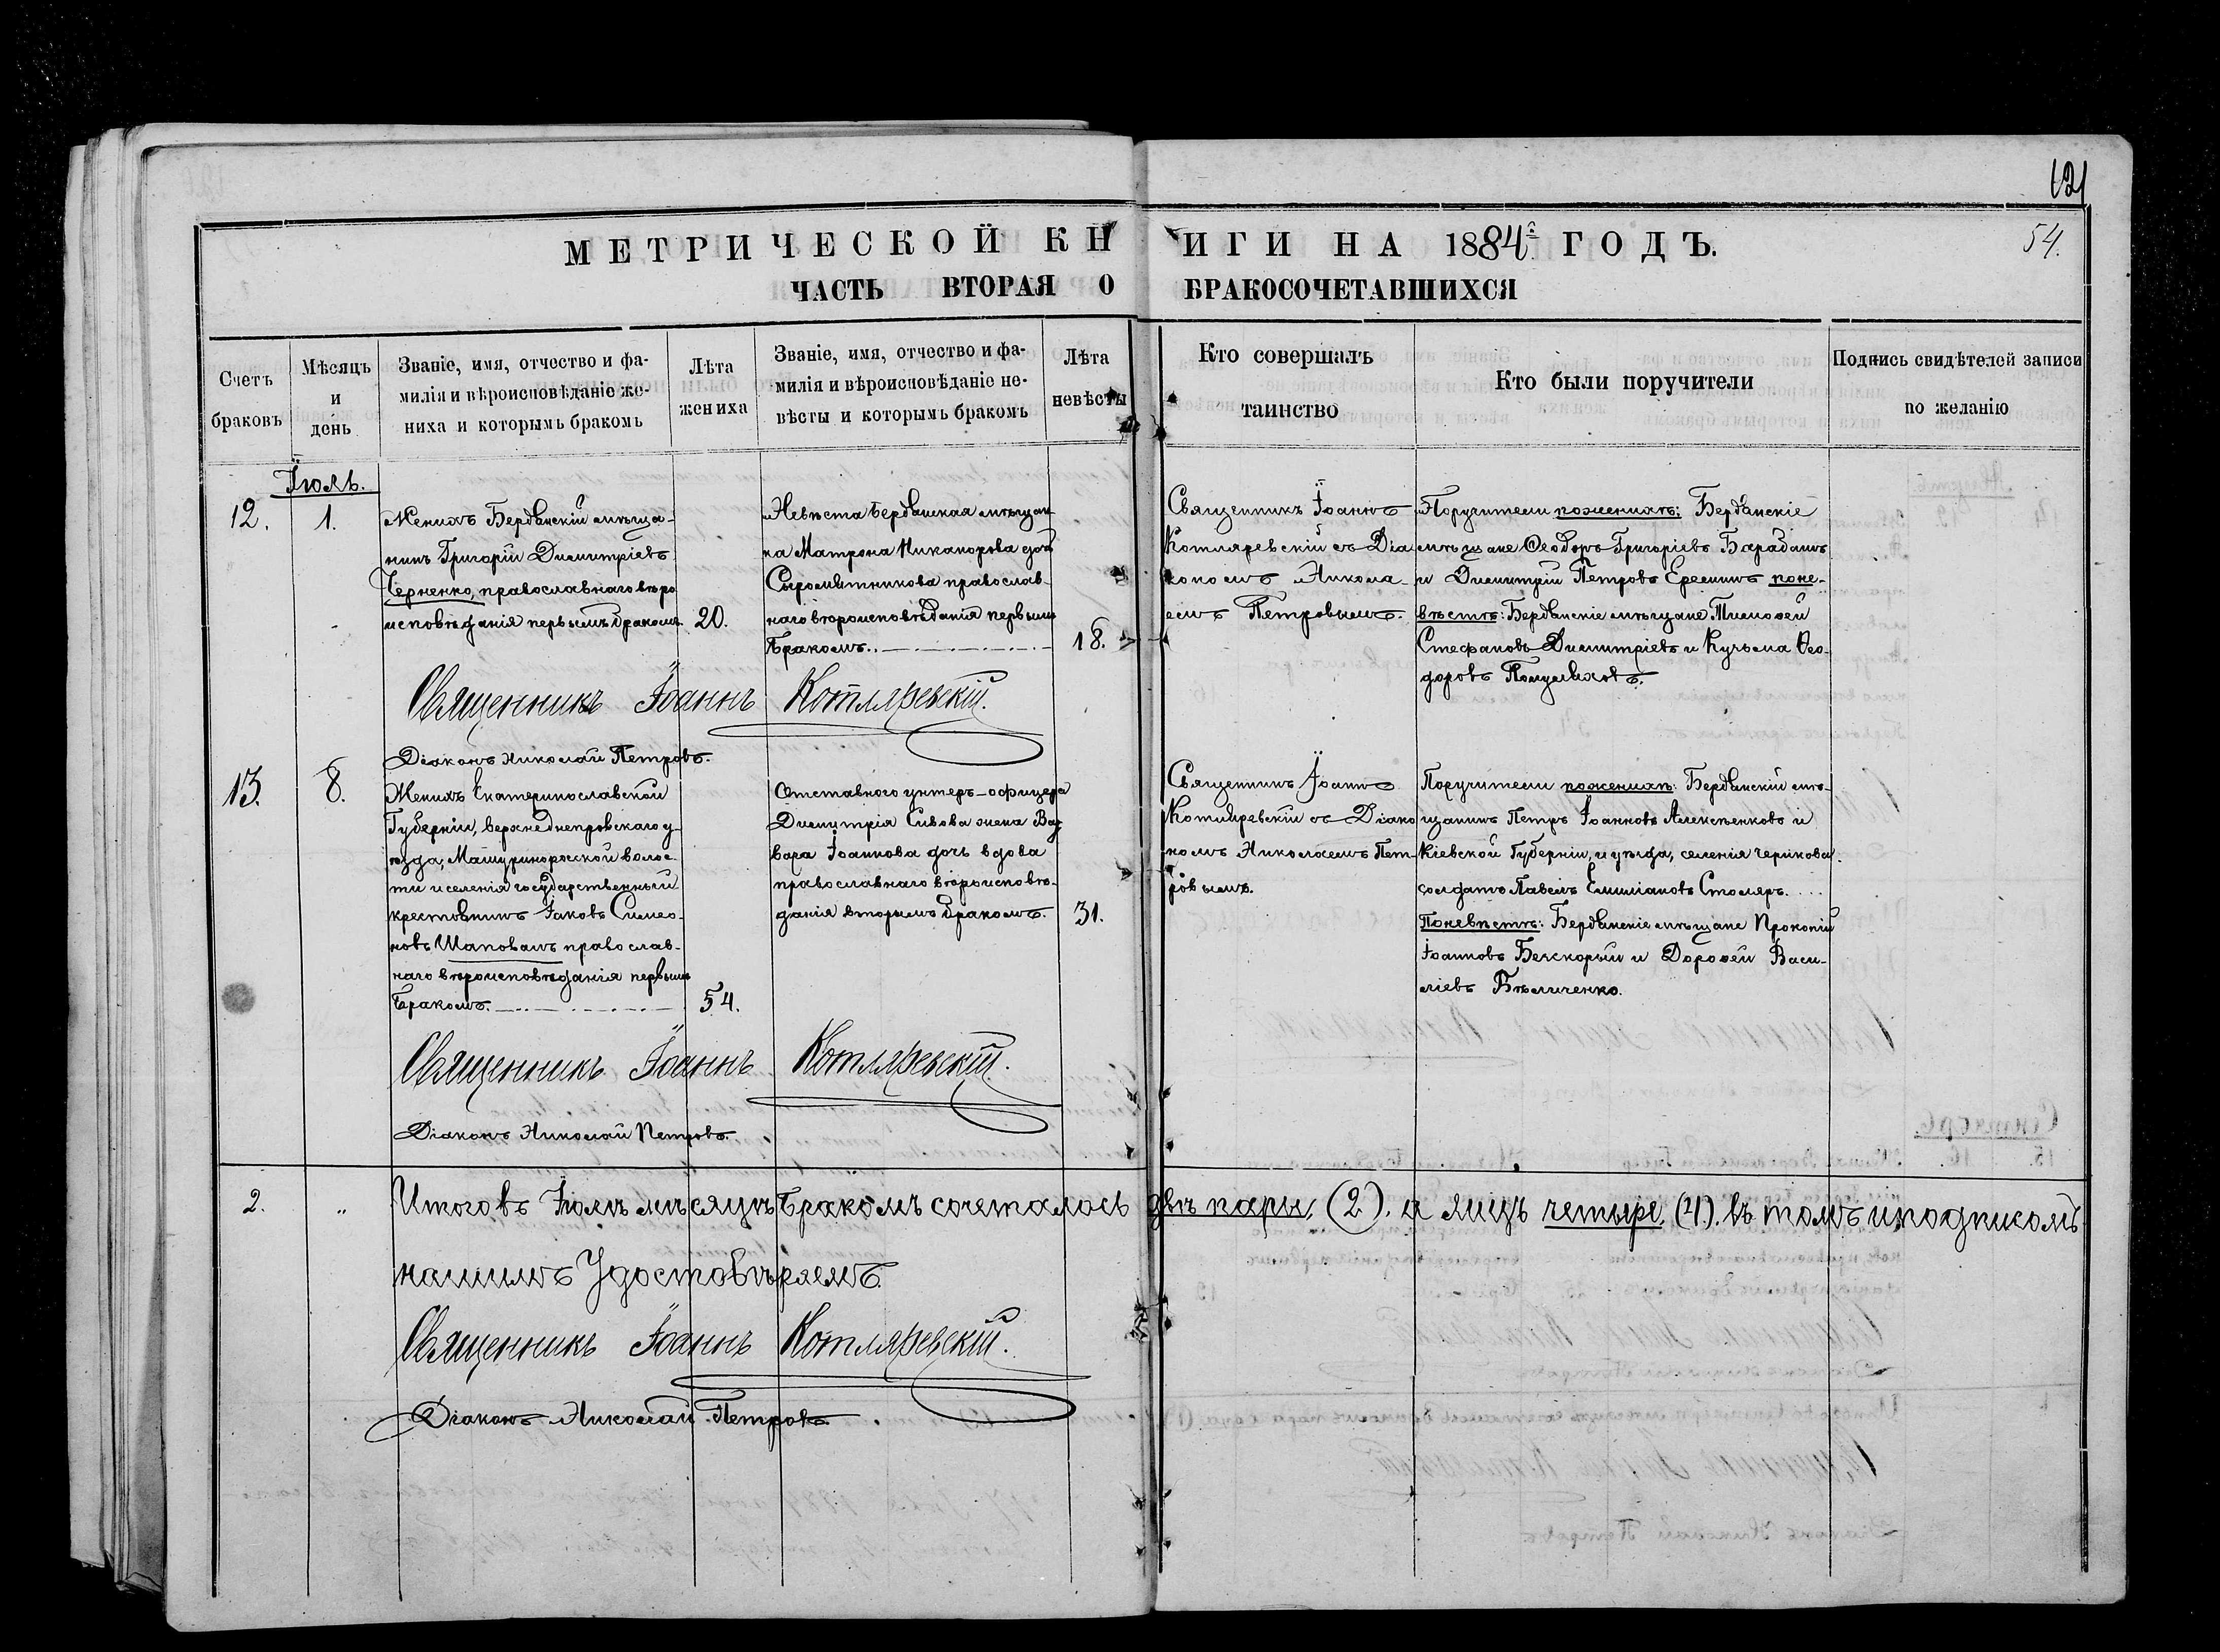 121
МЕТРИЧЕСКОЙ КНИГИ НА 1884й ГОДЪ.
54.
ЧАСТЬ ВТОРАЯ О БРАКОСОЧЕТАВШИХСЯ
Счетъ
браковъ
Мѣсяцъ
и
день
Званіе, имя, отчество и фа-
милія и вѣроисповѣданіе же-
ниха и которымъ бракомъ
Лѣта
жениха
Званіе, имя, отчество и фа-
милія и вѣроисповѣданіе не-
вѣсты и которымъ бракомъ
Лѣта
невѣсты
Кто совершалъ
таинство
Кто были поручители
Подпись свидѣтелей записи
по желанію
Іюль.
12.
1.
Женихъ Бердянскій мѣща-
нинъ Григорій Димитріевъ
Черненко, православнаго вѣро
исповѣданія первымъ бракомъ
20.
Невѣста Бердянская мѣщан
ка Матрона Никанорова дочь
Сыромятникова православ-
наго вѣроисповѣданія первымъ
бракомъ.
18.
Священникъ Іоаннъ
Котляревскій съ Діа
кономъ Никола-
емъ Петровымъ.
Поручители по женихѣ: Бердянскіе
мѣщане Ѳеодоръ Григоріевъ Барабашъ
и Димитрій Петровъ Ереминъ по не-
вѣстѣ: Бердянскіе мѣщане Тимоѳей
Стефановъ Димитріевъ и Кузьма Ѳео-
доровъ
Священникъ Іоаннъ Котляревскій.
Діаконъ Николай Петровъ.
13.
8.
Женихъ Екатеринославской
Губерніи, Верхнеднепровскаго у-
ѣзда, волос-
ти и селенія государственный
крестьянинъ Іаковъ Симео-
новъ Шаповалъ православ-
наго вѣроисповѣданія первымъ
бракомъ.
54.
Отставного унтеръ-офицера
Димитрія Сивова жена Вар
вара Іоаннова дочь вдова
православнаго вѣроисповѣ-
данія вторымъ бракомъ.
31.
Священникъ Іоаннъ
Котляревскій съ Діако
номъ Николаемъ Пет-
ровымъ.
Поручители по женихѣ: Бердянскій мѣ-
щанинъ Петръ Іоанновъ Алексѣенковъ и
Кіевской Губерніи, и уѣзда, селенія
солдатъ Павелъ Емиліановъ Столяръ.
По невѣстѣ: Бердянскіе мѣщане Прокопій
Іоанновъ и Дороѳей Васи-
ліевъ Бѣличенко.
Священникъ Іоаннъ Котляревскій.
Діаконъ Николай Петровъ.
2.
"
Итого въ Іюлѣ мѣсяцѣ бракомъ сочеталось двѣ пары, (2). а лицъ четыре, (4). въ томъ и подписомъ
нашимъ Удостовѣряемъ.
Священникъ Іоаннъ Котляревскій.
Діаконъ Николай Петровъ.